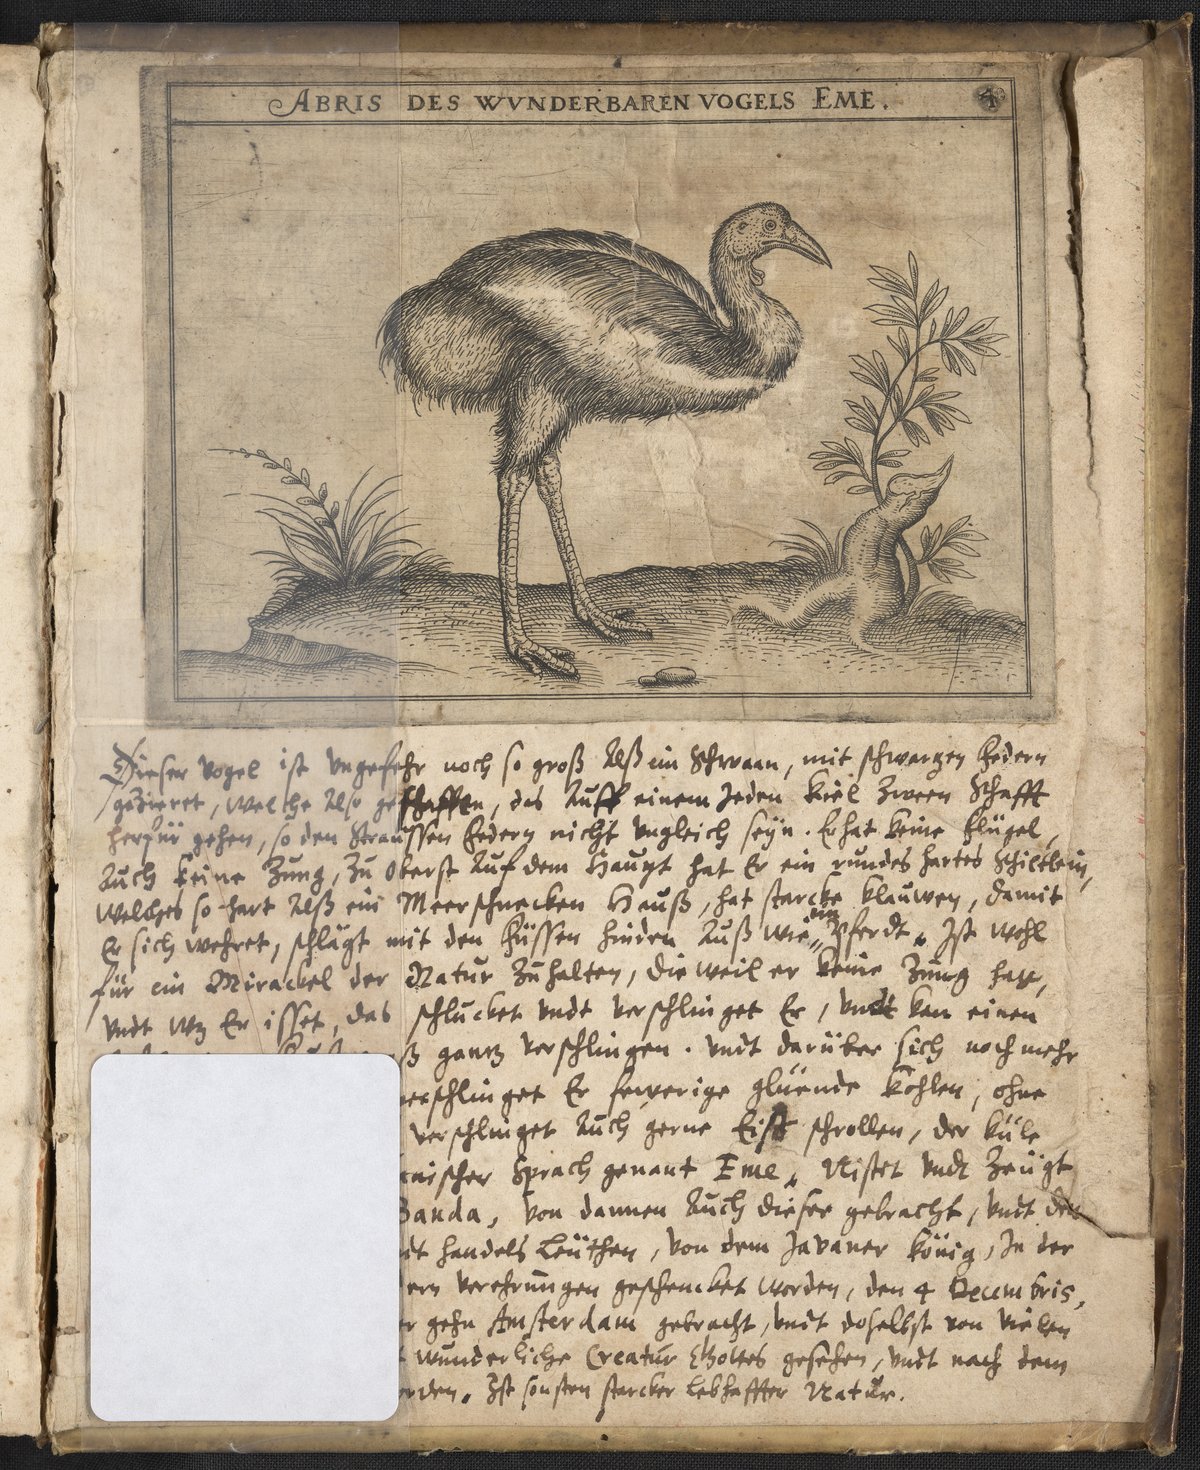 ABRIS DES WVNDERBAREN VOGELS EME.
4
Dieser Vogel ist vngefehr noch so groß Alß ein Schwaan, mit schwarzen Federn
gezieret, welche Also geschaffen, das Auff einem Jeden Kiel Zween Schafft
herfür gehen, so den Straussen Federn nicht vngleich seÿn. Er hat keine Flügel,
Auch keine Zung, Zu Oberst Auf dem Haupt hat Er ein rundes hartes Schiltlein,
Welches so hart Alß ein Meerschnecken Hauß, hat starcke klauwen, damit
Er sich wehret, schlägt mit den Füssen hinden Auß wie ein Pferdt. Ist wohl
für ein Mirackel der Natur Zuhalten, die weil er keine Zung hatt,
Vndt Wz Er isset, das schlucket vndt verschlinget Er, vndt kan einen
ß gantz verschlingen. Vndt darüber sich noch mehr
verschlinget Er fewerige glüende Kohlen, ohne
verschlinget Auch gerne Eiß schrollen, der küle
nischer Sprach genant Eme, Nistet vndt Zeügt
Banda, von dannen Auch dieser gebracht, vndt den
dt handels Leüthen, von dem Javaner König, In der
ern verehrungen geschencket worden, den 4 Decembris,
er gehn Amsterdam gebracht, vndt doselbst von vielen
t wunderliche Creatur Gottes gesehen, vndt nach dem
orden. Ist sonsten starcker Lebhaffter Natur.